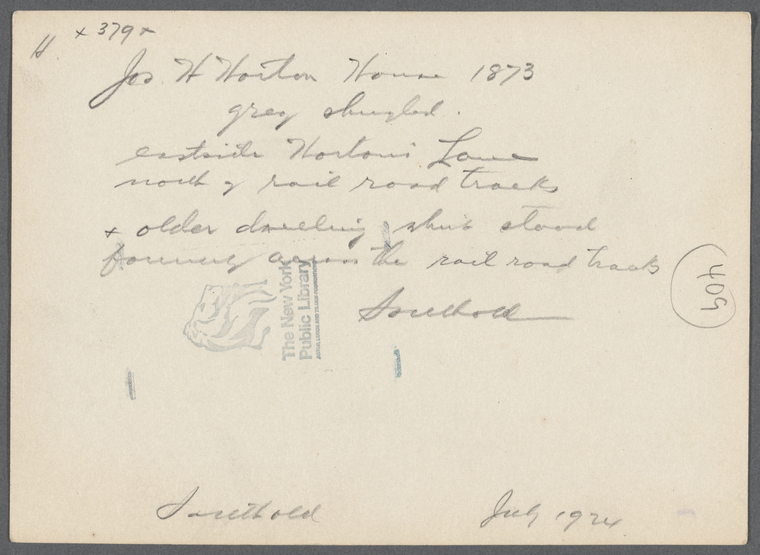 H x 379 x
Jos. H Horton House 1873
grey shingled.
eastside Horton's Lane
north of rail road tracks
+ older dwelling this stood
formerly across the rail road tracks
Southold
409
The New York
Public Library
ASTOR, LENOX AND TILDEN FOUNDATIONS
Southold July 1924